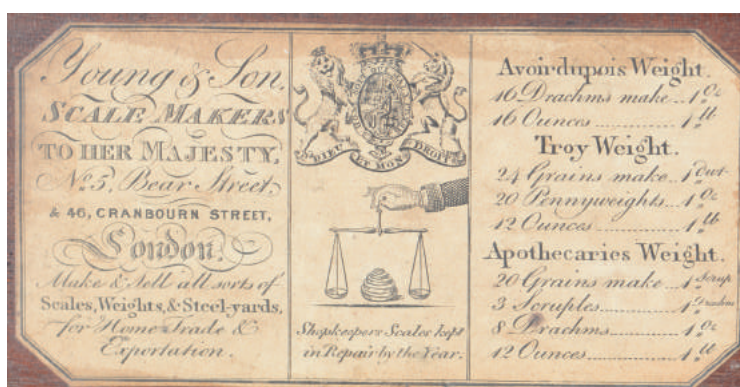 Young & Son.
SCALE MAKERS
TO HER MAJESTY,
No. 5, Bear Street,
& 46, CRANBOURN STREET,
London.
Make & Sell all sorts of
Scales, Weights, & Steel-yards,
for Home Trade &
Exportation.
DIEU ET MON DROIT
Shopkeepers Scales kept
in Repair by the Year.
Avoirdupois Weight.
16 Drachms make ... 1 oz
16 Ounces ............ 1 lb
Troy Weight.
24 Grains make .. 1 dwt
20 Pennyweights ... 1 oz
12 Ounces ............ 1 lb
Apothecaries Weight.
20 Grains make .... 1 Scrup
3 Scruples ............ 1 Drachm
8 Drachms ............ 1 oz
12 Ounces ............ 1 lb